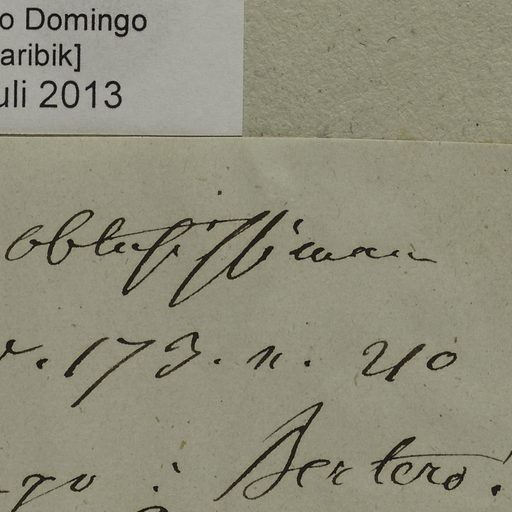 o Domingo
aribik]
uli 2013
obtusissima
v. 173. n. 210
go: Bertero.